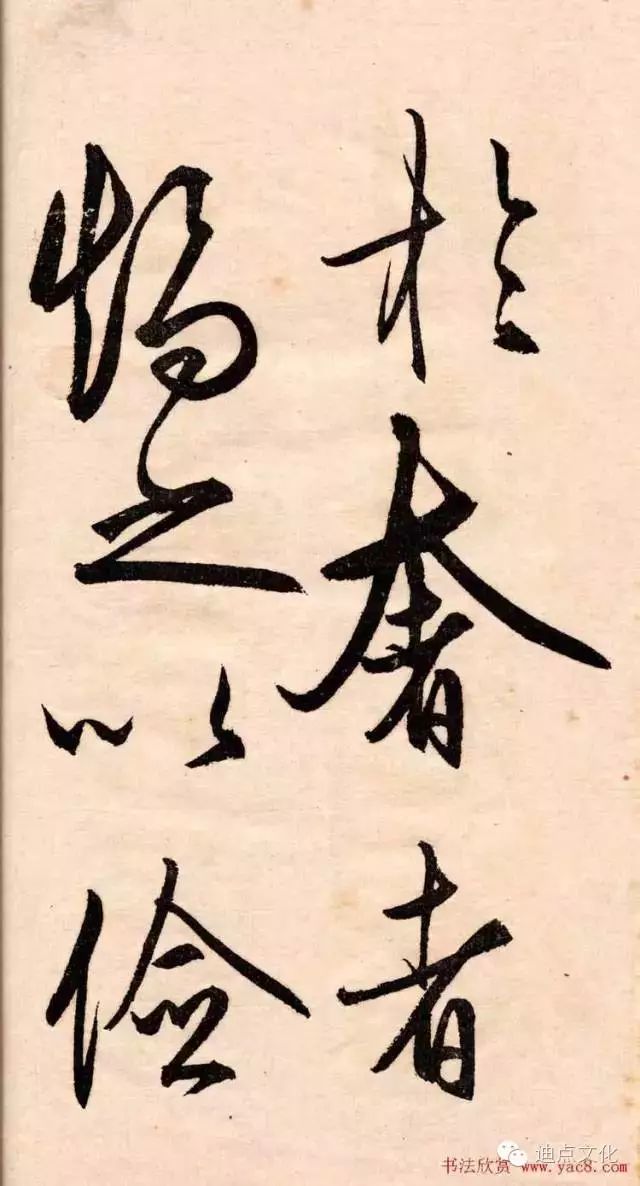 於奢者
矯之以儉
迪点文化
书法欣赏 www.yac8.com